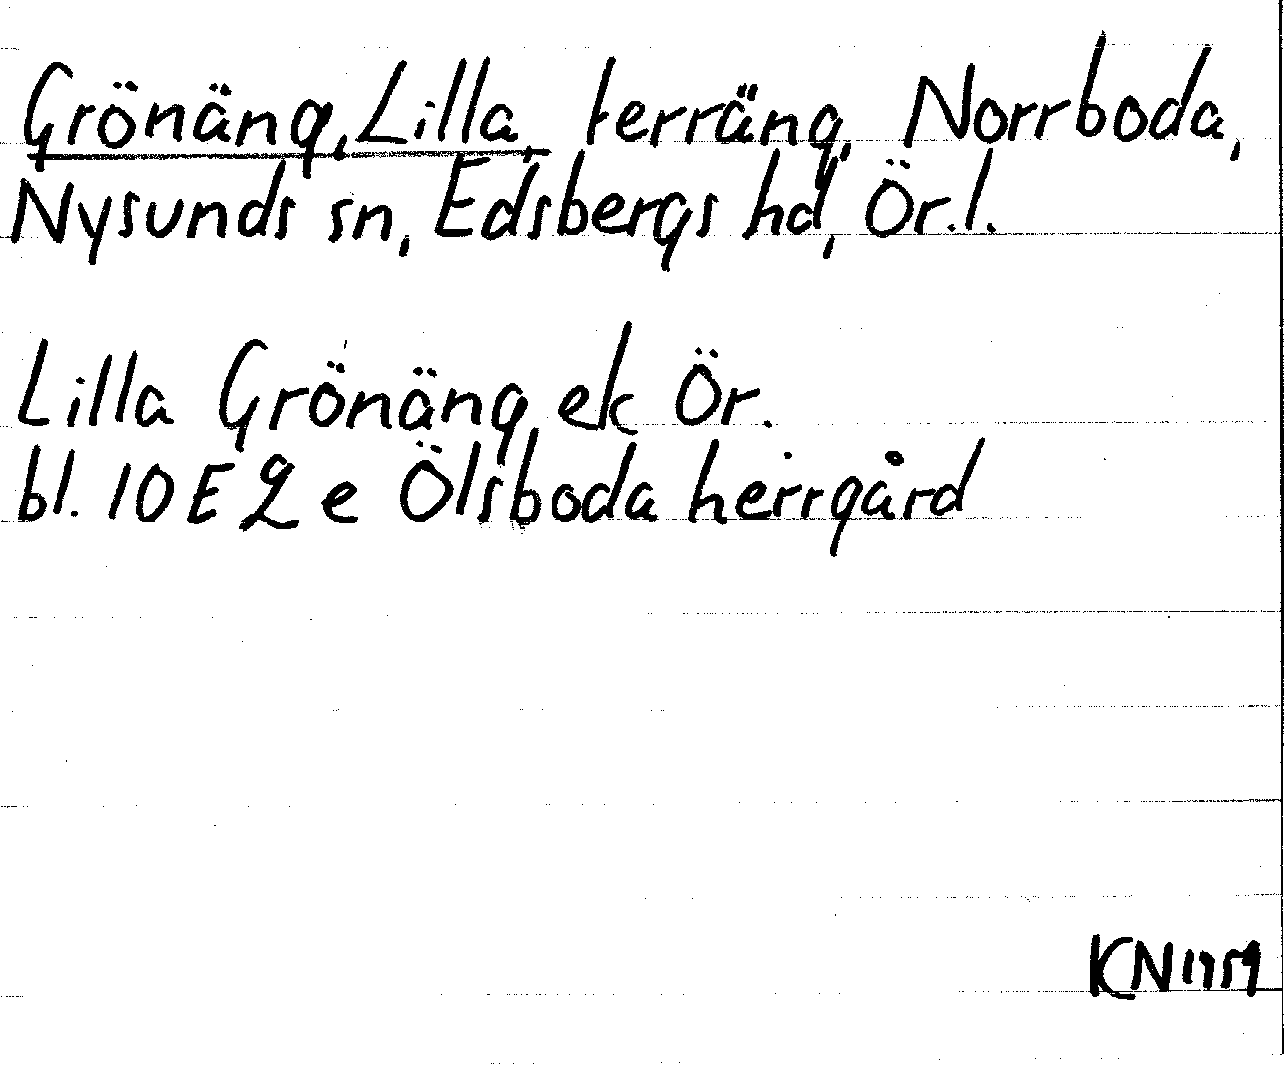 Grönäng, Lilla, terräng, Norrboda,
Nysunds sn, Edsbergs hd, Ör.l.
Lilla Grönäng ek Ör.
bl. 10E2e Ölsboda herrgård